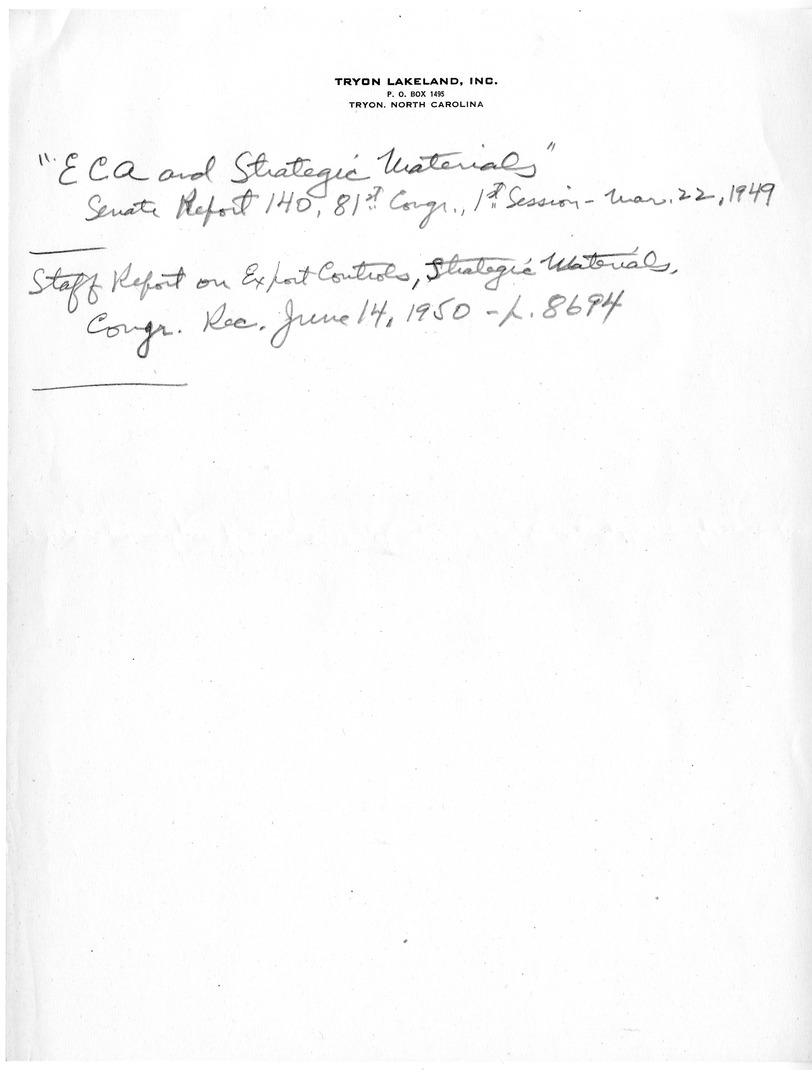 TRYON LAKELAND, INC.
P. O. BOX 1495
TRYON, NORTH CAROLINA
"ECA and Strategic Materials"
Senate Report 140, 81st Congr., 1st Session - Mar. 22, 1949
Staff Report on Export Controls, Strategic Materials,
Congr. Rec. June 14, 1950 - p. 8694